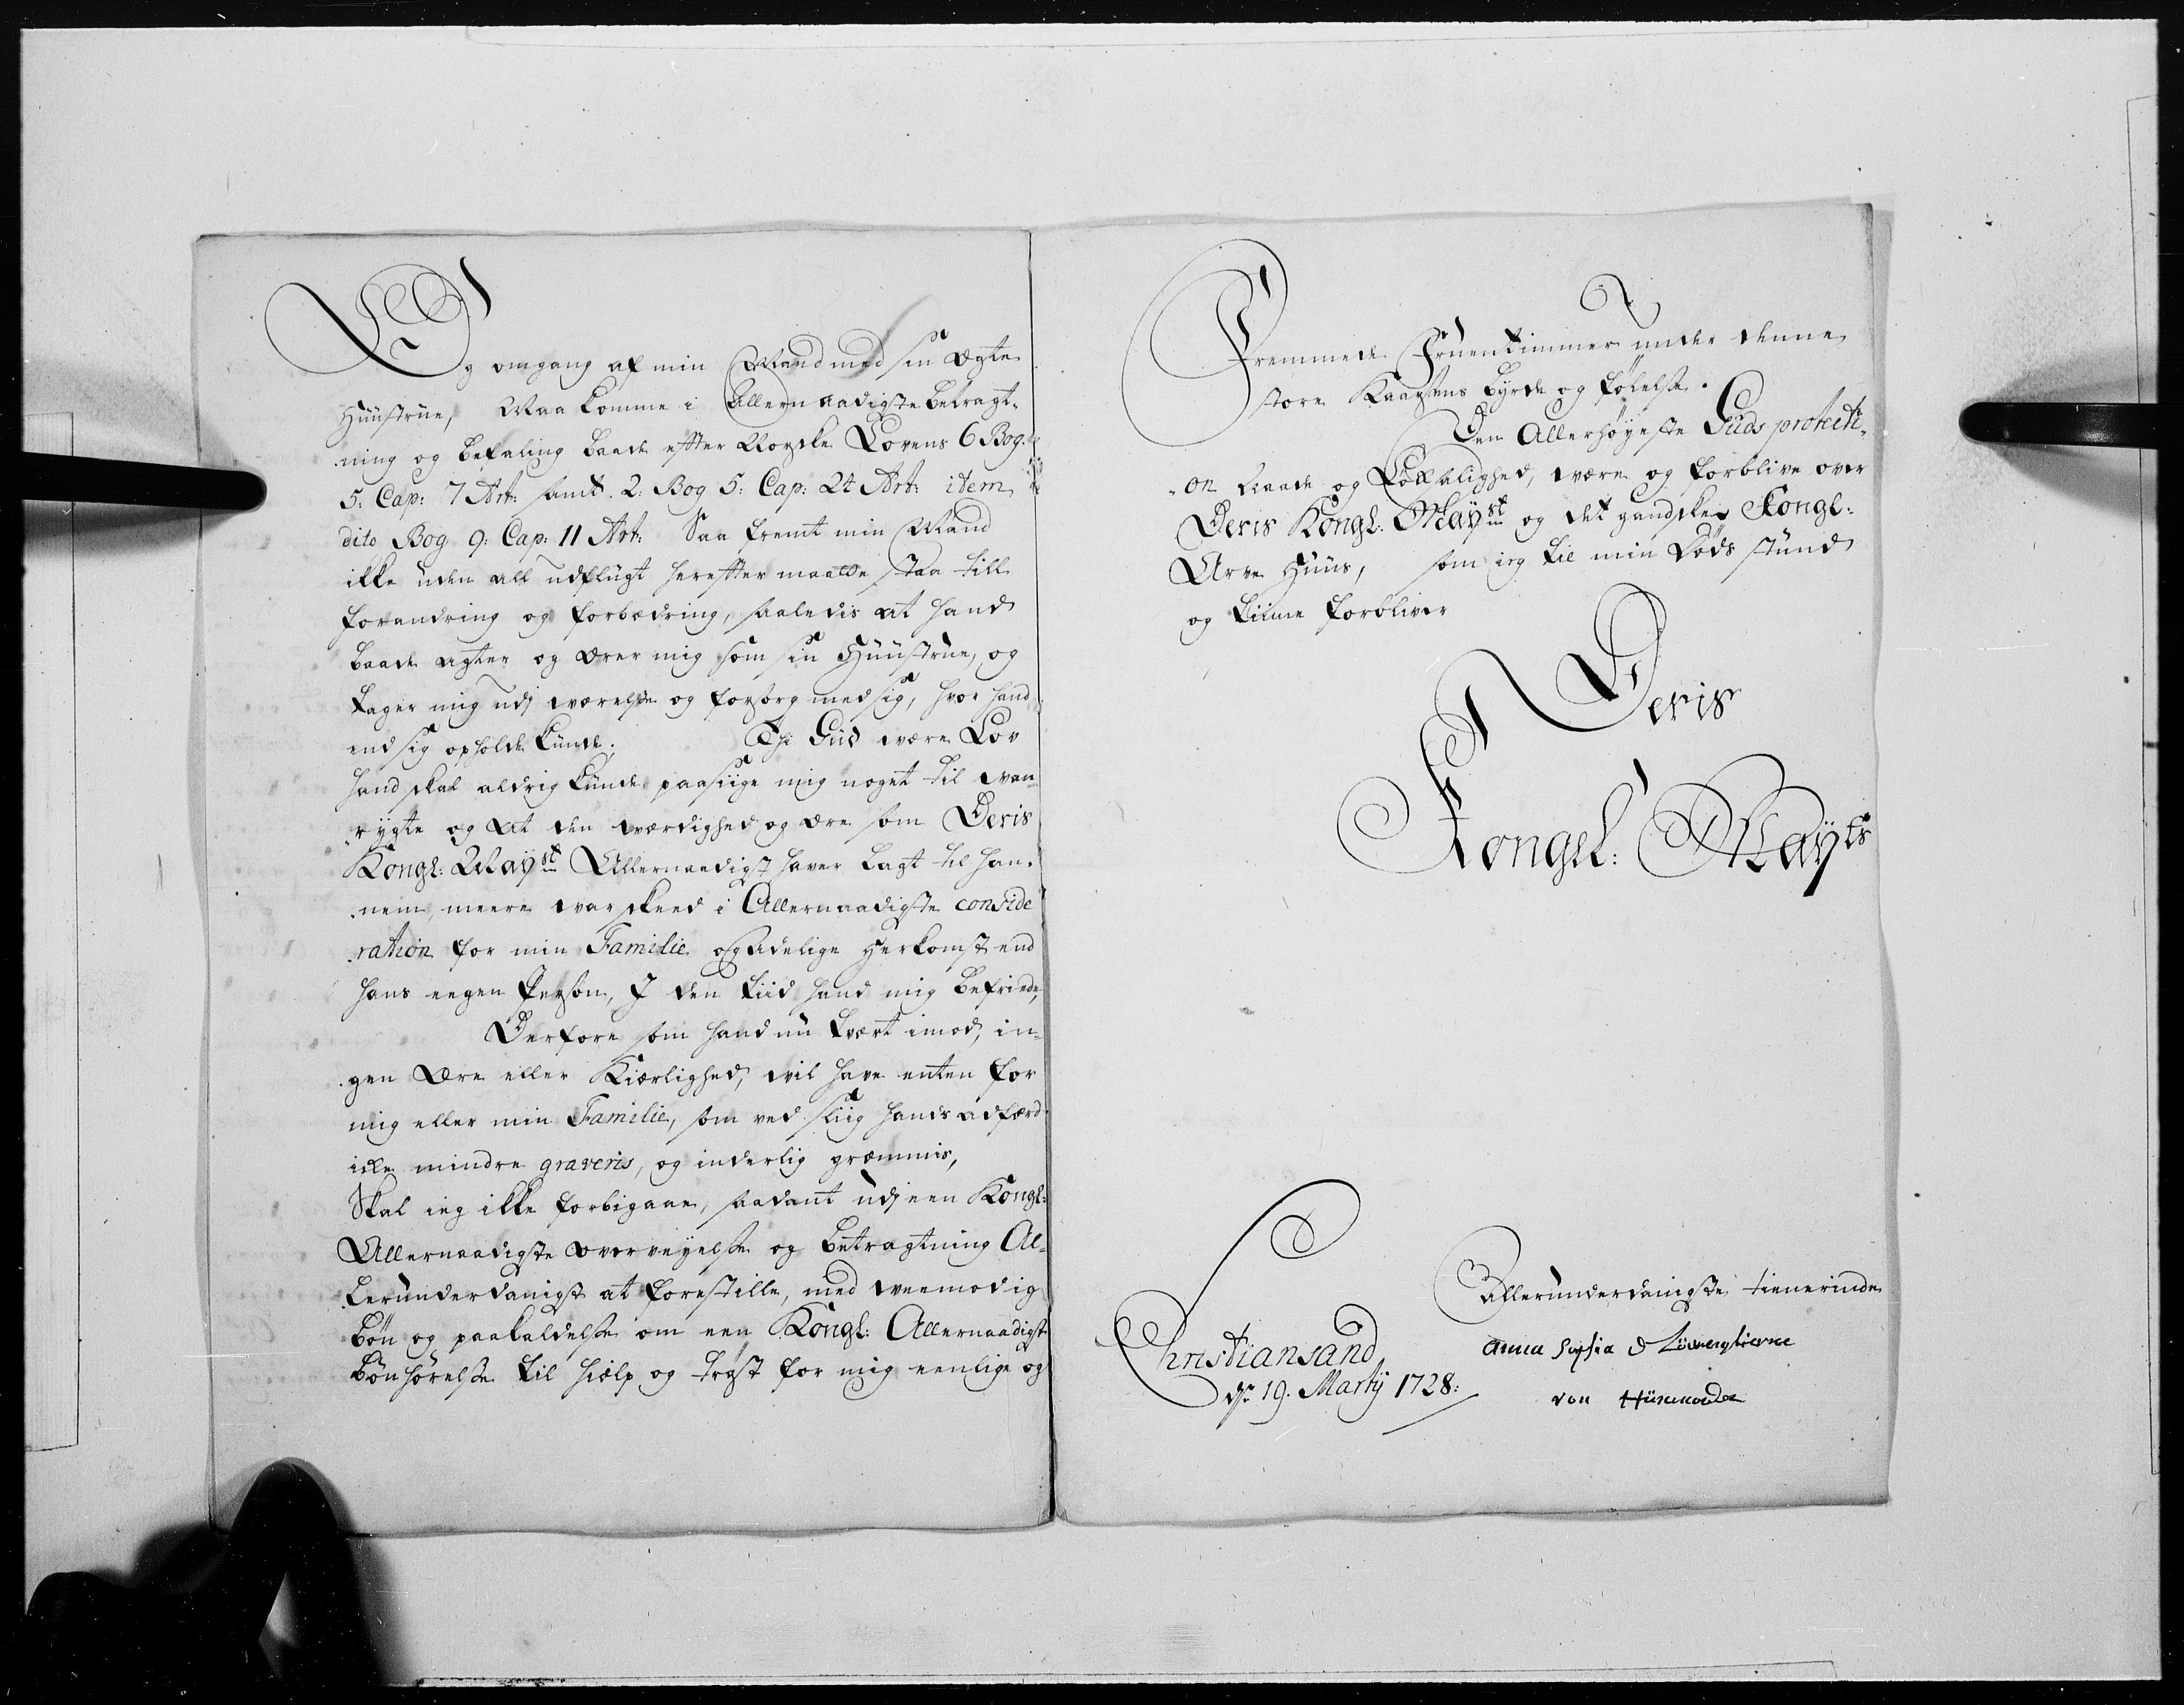 Og omgang af min Mand med sin Ægte
Huustrue, Maa komme i Allernaadigste betragt-
ning og befaling baade efter Norske Lovens 6 Bog.
5: Cap: 7 Art: samt. 2: Bog 5: Cap: 24 Art: item
dito Bog 9: Cap: 11 Art: Saa fremt min Mand
ikke uden all udflugt herefter maatte staa till
forandring og forbedring, saaledis at hand
baade agter og ærer mig som sin Huustrue, og
tager mig udj værelse og forsorg med sig, hvor hand
end sig opholde kunde. Thi Gud være Lov
hand skal aldrig kunde paasiige mig noget til van-
rygte og at den værdighed og ære som Deris
Kongl: Mayst Allernaadigst haver lagt til han-
nem, meere var skeed i Allernaadigste conside
ration for min Familie og adelige Herkomst end
hans eegen Person, I den tiid hand mig befriede,
Derfore som hand nu tvært imod, in-
gen Ære eller Kiærlighed, vil have enten for
mig eller min Familie, som ved sliig hands adfærd
icke mindre graveris, og inderlig græmmis,
Skal ieg ikke forbigaae, saadant udj een Kongl:
Allernaadigste overveyelse og betragtning Al-
lerunderdanigst at forestille, med veemodig
bøn og paakaldelse om een Kongl: Allernaadigst
bønhørelse til hielp og trøst for mig eenlige og
Fremmede Fruentimmer under denne
store Kaarsens byrde og følelse.
Den Allerhøyeste Guds protecti-
on Naade og Lyksalighed, være og forblive over
Deris Kongl: Mayst og det gandske Kongl:
Arve Huus, som ieg til min Døds stund
og tiime forbliver
Deris
Kongel: Mayts
Allerunderdanigste tienerinde
Christiansand
dn 19. Martij 1728:
Anna Sophia
von